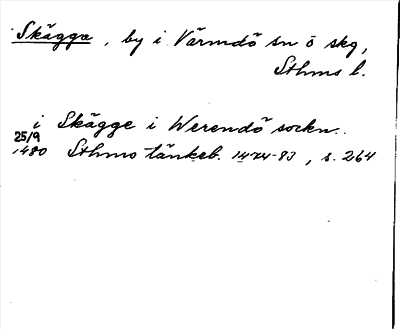 Skägga, by i Värmdö sn ö skg,
Sthms l.
i Skägge i Werendö sockn.
25/9
1480 Sthms tänkeb. 1474-83, s. 264